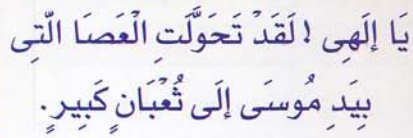 يَا إِلَهِى ! لَقَدْ تَحَوَّلَتِ الْعَصَا الَّتِى
بِيَدِ مُوسَى إِلَى ثُعْبَانٍ كَبِيرٍ .